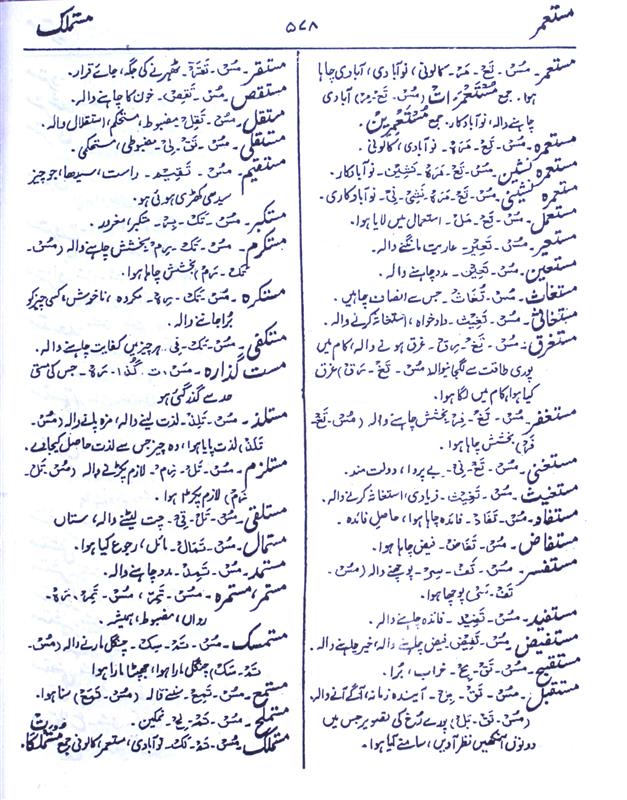 مستعمر
۵۷۸
مستملک
مستعمر۔ مُس۔ تَع۔ مَر۔ کالونی، نوآبادی، آبادی چاہا
ہوا۔ جمع مُستَعمَرات (مُس۔ تَع۔ مِر) آبادی
چاہنے والہ، نوآبادکار۔ جمع مُستَعمِرین۔
مستعمرہ۔ مُس۔ تَع۔ مَرَہ۔ نوآبادی، کالونی۔
مستعمرہ نشین۔ مُس۔ تَع۔ مَرَہ۔ نَشِین۔ نوآبادکار۔
مستعمرہ نشینی۔ مُس۔ تَع۔ مَرَہ۔ نَشِی۔ نِی۔ نوآبادکاری۔
مستعمل۔ مُس۔ تَع۔ مَل۔ استعمال میں لایا ہوا۔
مستعیر۔ مُس۔ تَعِیر۔ عاریت مانگنے والہ۔
مستعین۔ مُس۔ تَعِین۔ مدد چاہنے والہ۔
مستغاث۔ مُس۔ تَغَاث۔ جس سے انصاف چاہیں۔
مُس۔ تَغِیث۔ دادخواہ، استغاثہ کرنے والہ۔
مستغرق۔ مُس۔ تَغ۔ رِق۔ غرق ہونے والہ، کام میں
پوری طاقت سے لگجانیوالہ (مُس۔ تَغ۔ رَق) غرق
کیا ہوا، کام میں لگا ہوا۔
مستغفر۔ مُس۔ تَغ۔ فِر۔ بخشش چاہنے والہ (مُس۔ تَغ۔
فَر) بخشش چاہا ہوا۔
مستغنی۔ مُس۔ تَغ۔ نِی۔ بے پروا، دولت مند۔
مستغیث۔ مُس۔ تَغِیث۔ فریادی، استغاثہ کرنے والہ۔
مستفاد۔ مُس۔ تَفَاد۔ فائدہ چاہا ہوا، حاصل فائدہ۔
مستفاض۔ مُس۔ تَفَاض۔ فیض چاہا ہوا۔
مستفسر۔ مُس۔ تَف۔ سِر۔ پوچھنے والہ (مُس۔
تَف۔ سَر) پوچھا ہوا۔
مستفید۔ مُس۔ تَفِید۔ فائدہ چاہنے والہ۔
مستفیض۔ مُس۔ تَفِیض۔ فیض چاہنے والہ، خیر چاہنے والہ۔
مستقبح۔ مُس۔ تَق۔ بَح۔ خراب، بُرا۔
مستقبل۔ مُس۔ تَق۔ بِل۔ آیندہ زمانہ، آگے آنے والہ۔
(مُس۔ تَق۔ بَل) پورے رُخ کی تصویر جس میں
دونوں آنکھیں نظر آویں، سامنے کیا ہوا۔
مستقر۔ مُس۔ تَقَر۔ ٹھہرنے کی جگہ، جائے قرار۔
مُس۔ خون کا چاہنے والہ۔
مستقل۔ مُس۔ تَقِل۔ مضبوط، مستحکم، استقلال والہ۔
مستقلی۔ مُس۔ تَق۔ لِی۔ مضبوطی، مستحکمی۔
مستقیم۔ مُس۔ تَقِیم۔ راست، سیدھا، جو چیز
سیدھی کھڑی ہوئی ہو۔
مستکبر۔ مُس۔ تَک۔ بِر۔ متکبر، مغرور۔
مستکرم۔ مُس۔ تَک۔ رِم۔ بخشش چاہنے والہ (مُس۔
تَک۔ رَم) بخشش چاہا ہوا۔
مستکرہ۔ مُس۔ تَک۔ رِہ۔ مکروہ، ناخوش، کسی چیز کو
بُرا جاننے والہ۔
مستکفی۔ مُس۔ تَک۔ فِی۔ ہر چیز میں کفایت چاہنے والہ۔
مست گذارہ۔ مَس۔ ت۔ گُذا۔ رَہ۔ جس کی مستی
حد سے گذر گئی ہو
مستلذ۔ مُس۔ تَلِذ۔ لذت لینے والہ، مزہ پانے والہ (مُس۔
تَلَذ) لذت پایا ہوا، وہ چیز جس سے لذت حاصل کیجائے۔
مستلزم۔ مُس۔ تَل۔ زِم۔ لازم پکڑنے والہ (مُس۔ تَل۔
زَم) لازم پکڑا ہوا۔
مستلقی۔ مُس۔ تَل۔ قِی۔ چت لیٹنے والہ، ستاں
مستمال۔ مُس۔ تَمَال۔ مائل، رجوع کیا ہوا۔
مستمد۔ مُس۔ تَمِد۔ مدد چاہنے والہ۔
مستمر، مستمرہ۔ مُس۔ تَمِر، مُس۔ تَمِر۔ رَہ۔
رواں، مضبوط، ہمیشہ۔
مستمسک۔ مُس۔ تَم۔ سِک۔ چنگل مارنے والہ (مُس۔
تَم۔ سَک) چنگل مارا ہوا، جھپٹا مارا ہوا
مستمع۔ مُس۔ تَمِع۔ سننے والہ (مُس۔ تَمَع) سنا ہوا۔
مستملح۔ مُس۔ تَم۔ لِح۔ نمکین۔
مستملک۔ مُس۔ تَم۔ لَک۔ نوآبادی، مستعمرہ، کالونی جمع مستملکات